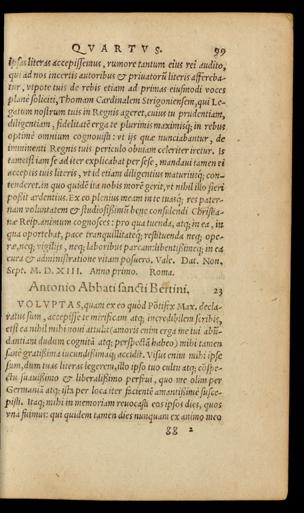 QVARTVS. 99
ipsas literas accepissemus, rumore tantum eius rei audito,
qui ad nos incertis autoribus & priuatorũ literis afferebatur,
vtpote tuis de rebis etiam ad primas eiusmodi voces
planè soliciti, Thomam Cardinalem Strigoniensem, qui Legatum
nostrum tuis in Regnis ageret, cuius tu prudentiam,
diligentiam, fidelitatẽ erga te plurimis maximisq; in rebus
optimè omnium cognouisti: vt ijs quæ nunciabantur, de
imminenti Regnis tuis periculo obuiàm celeriter iretur. Is
tametsi iam se ad iter explicabat per sese, mandaui tamen ei
acceptis tuis literis, vt id etiam diligentius maturiusq; contenderet.
in quo quidẽ ita nobis morẽ gerit, vt nihil illo fieri
possit ardentius. Ex eo plenius meam in te tuasq; res paternam
voluntatem & studiosissimũ benè consulendi Christianæ
Reip. animum cognosces: pro qua tuenda, atq; in ea, in
qua oportebat, pace tranquillitateq; restituenda neq; operæ,
neq; vigilijs, neq; laboribus parcam: libentissimeq; in ea
cura & administratione vitam posuero. Vale. Dat. Non.
Sept. M. D. XIII. Anno primo. Roma.
Antonio Abbati sancti Bertini. 23
VOLVPTAS, quam ex eo quòd Põtifex Max. declaratus
sum, accepisse te mirificam atq; incredibilem scribis,
etsi ea nihil mihi noui attulit (amoris enim erga me tui abũdantiam
dudum cognitã atq; perspectã habeo) mihi tamen
sanè gratissima iucundissimaq; accidit. Visus enim mihi ipse
sum, dum tuas literas legerem, illo ipso tuo cultu atq; cõspectu
suauissimo & liberalissimo perfrui, quo me olim per
Germaniã atq; ista per loca iter facientẽ amantissimè suscepisti.
Itaq; mihi in memoriam reuocasti eos ipsos dies, quos
vnà fuimus: qui quidem tamen dies nunquam ex animo meo
gg 2